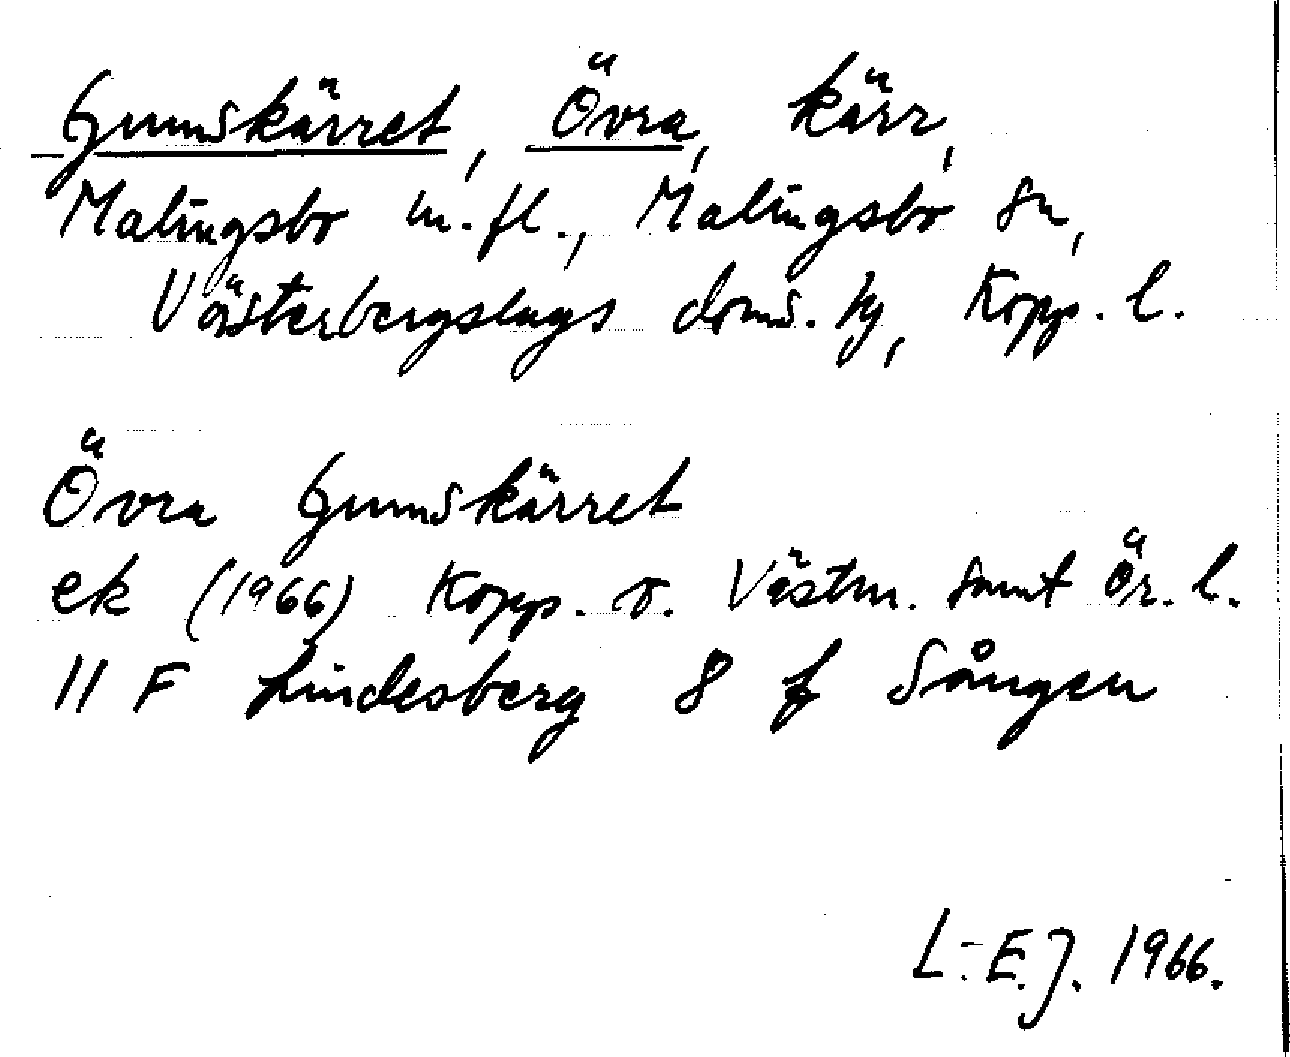 Gunnskärret, Övra, kärr,
Malingsbo m.fl., Malingsbo sn,
Västerbergslags doms. hg, Kopp. l.
Övra Gunnskärret
ek (1966) Kopp. o. Västm. samt Ör. l.
11 F Lindesberg 8 f Sången
L.-E.J. 1966.